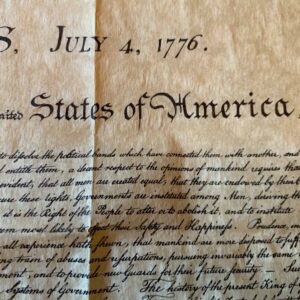 S, JULY 4, 1776.
United States of America,
to dissolve the political bands which have connected them with another, and
entitle them, a decent respect to the opinions of mankind requires tha
evident, that all men are created equal, that they are endowed by their
ure these rights, Governments are instituted among Men, deriving th
it is the Right of the People to alter or to abolish it, and to institute
em most likely to effect their Safety and Happiness. Prudence, in
all experience hath shewn, that mankind are more disposed to suf
ng train of abuses and usurpations, pursuing invariably the same
ment, and to provide new Guards for their future security — Su
Systems of Government. The history of the present King of